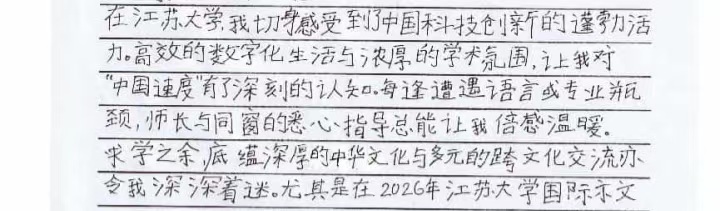 在江苏大学,我切身感受到了中国科技创新的谨勃活
力。高效的数字化生活与浓厚的学术氛围,让我对
"中国速度"有了深刻的认知。每逢遭遇语言或专业瓶
颈,师长与同窗的悉心指导总能让我倍感温暖。
求学之余,底蕴深厚的中华文化与多元的跨文化交流亦
令我深深着迷。尤其是在2026年江苏大学国际亦文